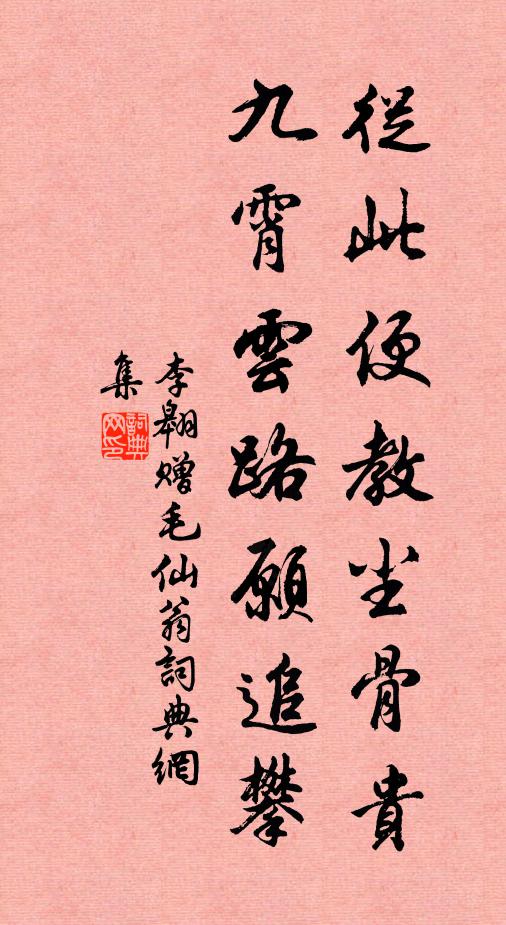 從此便教尘骨貴
九霄雲路願追攀
李翱贈毛仙翁詞典網
集
詞典
网印